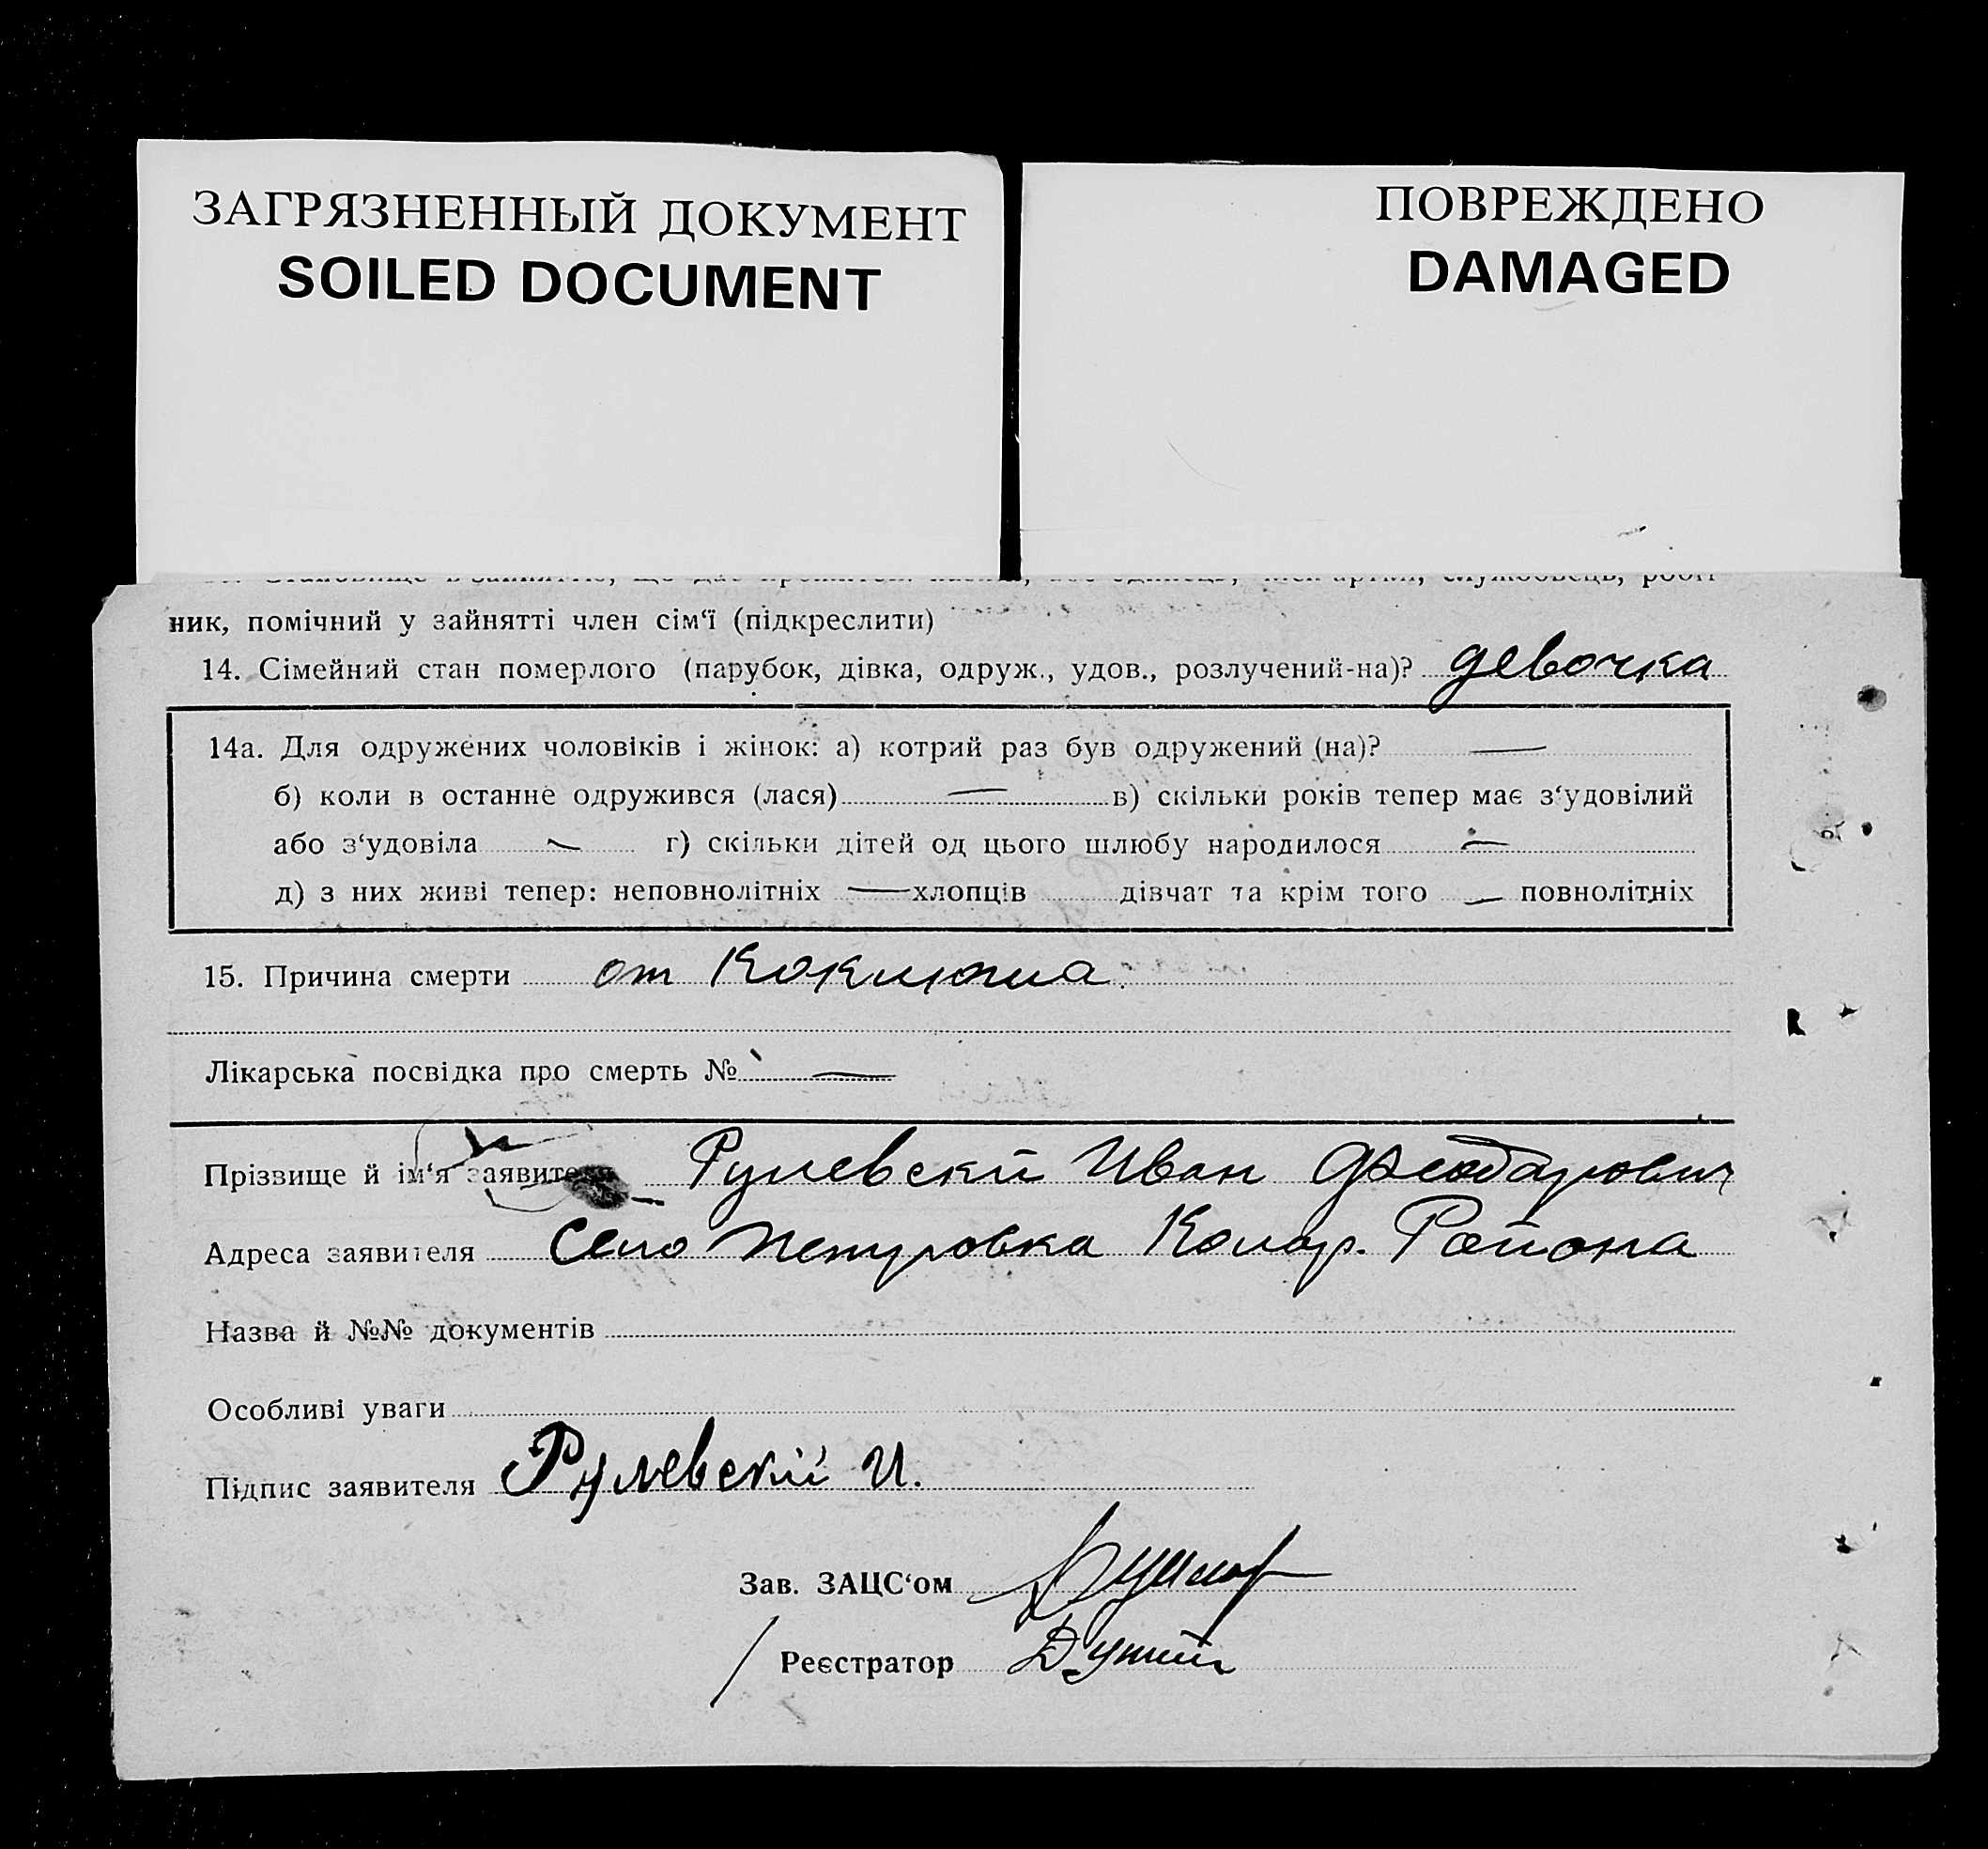 ЗАГРЯЗНЕННЫЙ ДОКУМЕНТ
SOILED DOCUMENT
ПОВРЕЖДЕНО
DAMAGED
ник, помічний у зайнятті член сім‘ї (підкреслити)
14. Сімейний стан померлого (парубок, дівка, одруж., удов., розлучений-на)? девочка
14а. Для одружених чоловіків і жінок: а) котрий раз був одружений (на)? —
б) коли в останнє одружився (лася) — в) скільки років тепер має з‘удовілий
або з‘удовіла — г) скільки дітей од цього шлюбу народилося —
д) з них живі тепер: неповнолітніх — хлопців дівчат та крім того — повнолітніх
15. Причина смерти от Коклюша.
Лікарська посвідка про смерть № —
Прізвище й ім‘я заявителя Рулевский Иван
Адреса заявителя Село Петровка Комар. Района
Назва й №№ документів
Особливі уваги
Підпис заявителя Рулевскій И.
Зав. ЗАЦС‘ом
Реєстратор